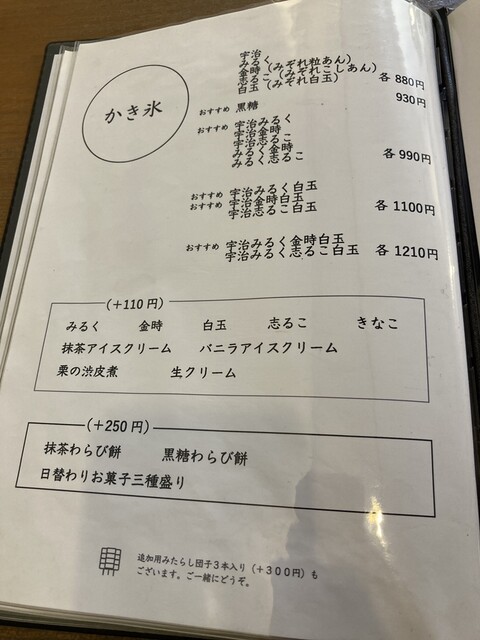 かき氷
宇治
みるく
金時（みぞれ粒あん）
志るこ（みぞれこしあん）
白玉（みぞれ白玉） 各880円
おすすめ 黒糖 930円
おすすめ 宇治みるく
宇治金時
宇治志るこ
みるく金時
みるく志るこ 各990円
おすすめ 宇治みるく白玉
おすすめ 宇治金時白玉
宇治志るこ白玉 各1100円
おすすめ 宇治みるく金時白玉
宇治みるく志るこ白玉 各1210円
（＋110円）
みるく 金時 白玉 志るこ きなこ
抹茶アイスクリーム バニラアイスクリーム
栗の渋皮煮 生クリーム
（＋250円）
抹茶わらび餅 黒糖わらび餅
日替わりお菓子三種盛り
追加用みたらし団子３本入り（＋３００円）も
ございます。ご一緒にどうぞ。